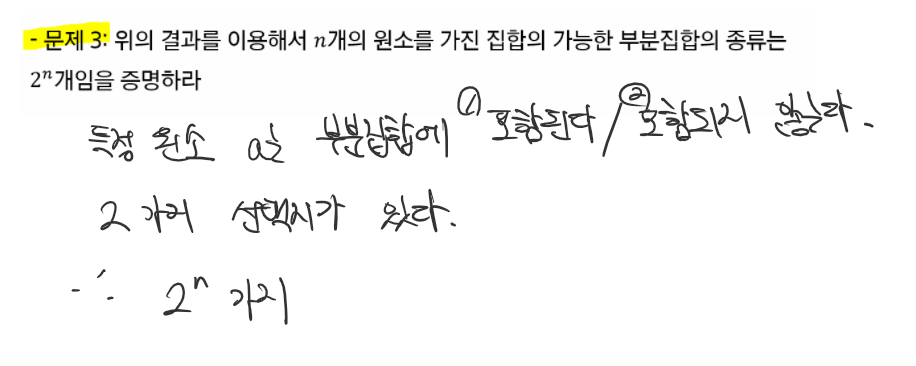 - 문제 3: 위의 결과를 이용해서 n개의 원소를 가진 집합의 가능한 부분집합의 종류는
2ⁿ개임을 증명하라
특정 원소 a는 부분집합에 ① 포함된다 / ② 포함되지 않는다.
2가지 선택지가 있다.
∴ 2ⁿ 가지